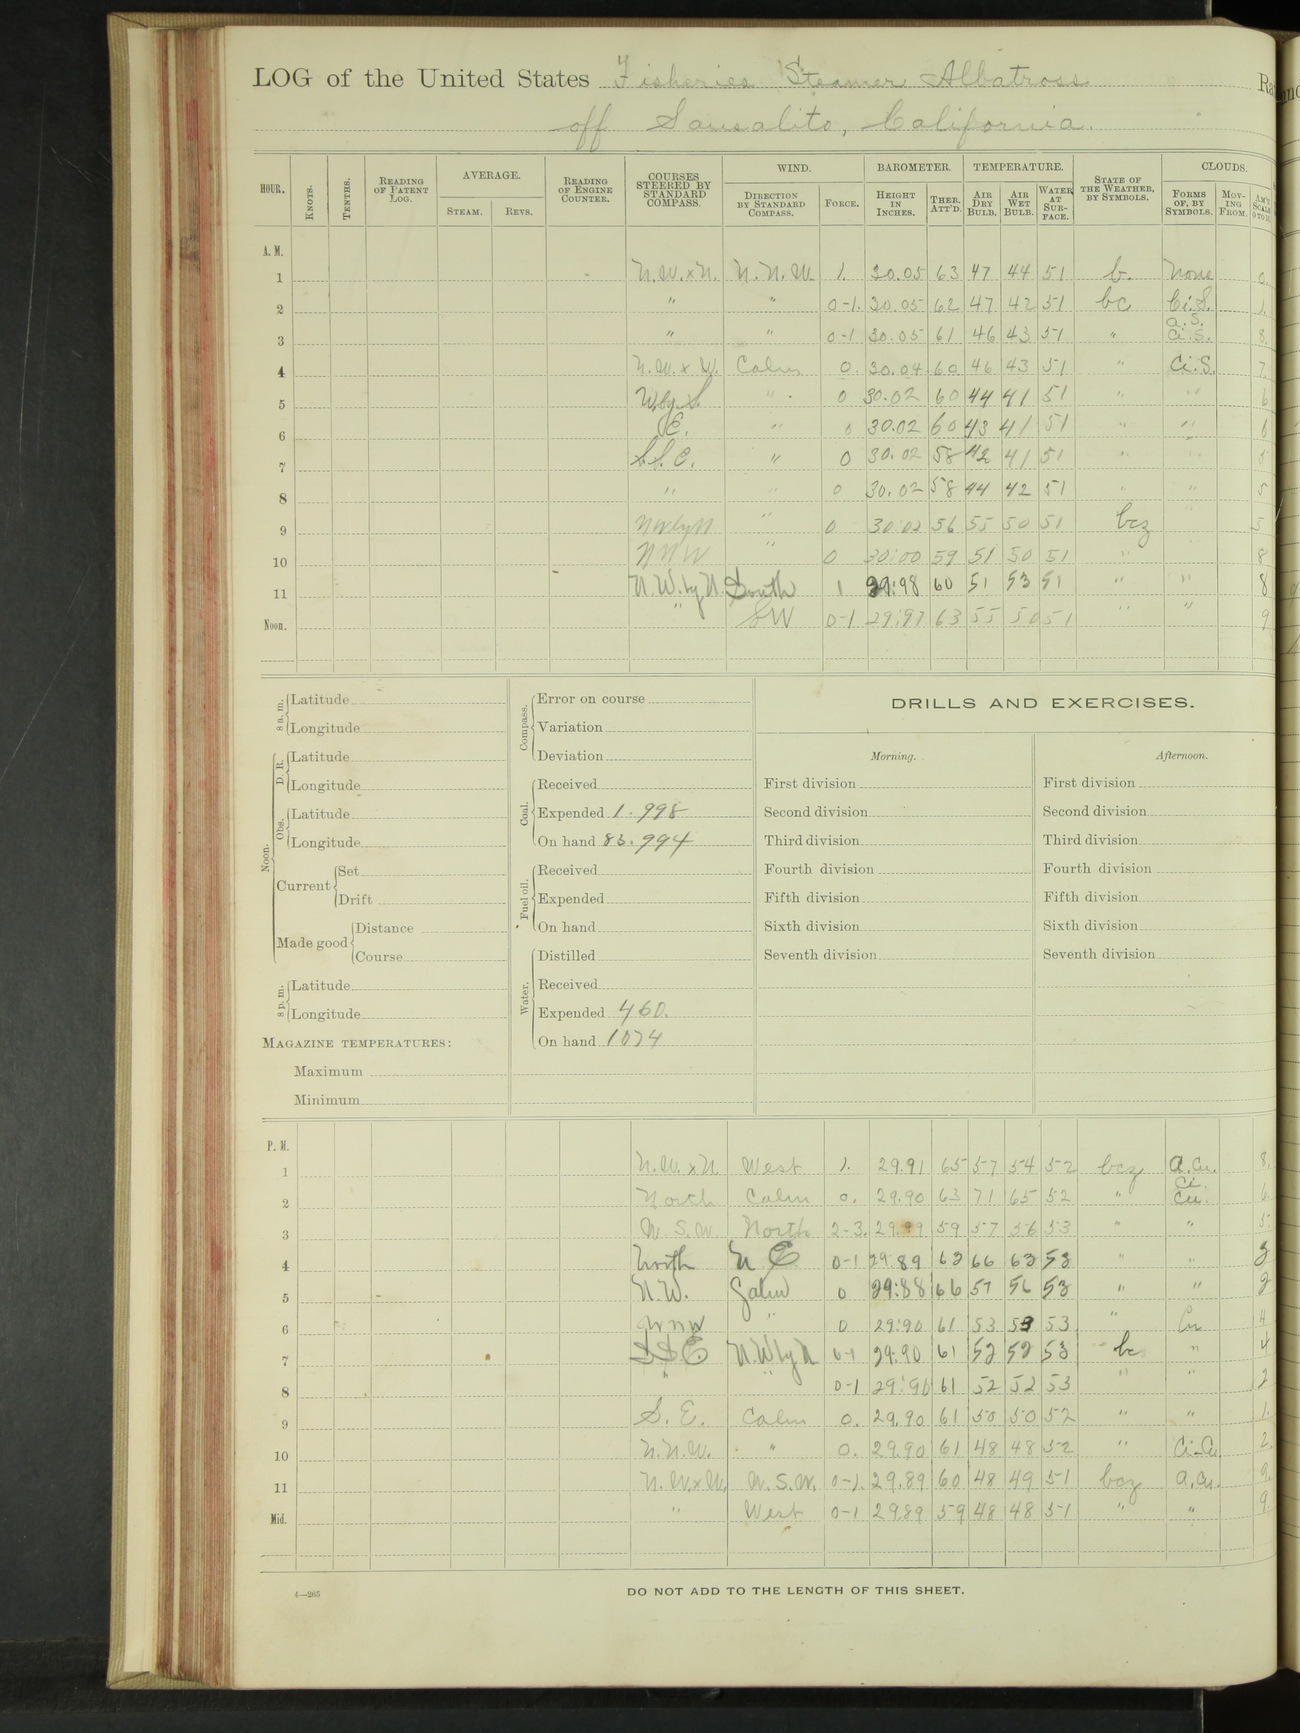 LOG of the United States Fisheries Steamer Albatross
off Sausalito, California.
HOUR. KNOTS. TENTHS. READING OF PATENT LOG. AVERAGE. STEAM. REVS. READING OF ENGINE COUNTER. COURSES STEERED BY STANDARD COMPASS. WIND. DIRECTION BY STANDARD COMPASS. FORCE. BAROMETER. HEIGHT IN INCHES. THER. ATT'D. TEMPERATURE. AIR DRY BULB. AIR WET BULB. WATER AT SURFACE. STATE OF THE WEATHER, BY SYMBOLS. CLOUDS. FORMS OF, BY SYMBOLS. MOVING FROM.
A. M.
1 N.W.xN. N.N.W. 1. 30.05 63 47 44 51 b. None 0.
2 " " 0-1. 30.05 62 47 42 51 bc Ci.S. 1.
3 " " 0-1 30.05 61 46 43 51 " a.S. Ci.S. 8.
4 N.W.xW. Calm 0. 30.04 60 46 43 51 " Ci.S. 7.
5 W.by.S. " 0 30.02 60 44 41 51 " " 6
6 E. " 0 30.02 60 43 41 51 " " 6
7 S.S.E. " 0 30.02 58 42 41 51 " "
8 " " 0 30.02 58 44 42 51 " " 5
9 NWbyN " 0 30:02 56 55 50 51 bcz " 5
10 NNW " 0 30:00 59 51 50 51 " 8
11 N.W.byN. South 1 29:98 60 51 53 51 " " 8
Noon. " SW 0-1 29:97 63 55 50 51 " " 9
8 a. m. Latitude
Longitude
Noon. D. R. Latitude
Longitude
Obs. Latitude
Longitude
Current Set
Drift
Made good Distance
Course
8 p. m. Latitude
Longitude
MAGAZINE TEMPERATURES:
Maximum
Minimum
Compass. Error on course
Variation
Deviation
Coal. Received
Expended 1.998
On hand 83.994
Fuel oil. Received
Expended
On hand
Water. Distilled
Received
Expended 460.
On hand 1074
DRILLS AND EXERCISES.
Morning.
First division
Second division
Third division
Fourth division
Fifth division
Sixth division
Seventh division
Afternoon.
First division
Second division
Third division
Fourth division
Fifth division
Sixth division
Seventh division
P. M.
1 N.W.xN West 1. 29.91 65 57 54 52 bcz a.Cu. 8.
2 North Calm 0. 29.90 63 71 65 52 " Ci. Cu. 6.
3 W.S.W. North 2-3. 29.89 59 57 56 53 " " 5.
4 North N E 0-1 29.89 63 66 63 53 " " 3
5 N.W. Calm 0 29:88 66 57 56 53 " " 2
6 " 0 29:90 61 53 53 53 " Cu 4
7 SSE NWbyN 0-1 29:90 61 52 52 53 bc " 4
8 " " 0-1 29:90 61 52 52 53 " " 2
9 S.E. Calm 0. 29.90 61 50 50 52 " " 1.
10 N.N.W. " 0. 29.90 61 48 48 52 " Ci-Cu 2.
11 N.W.xW. W.S.W. 0-1. 29.89 60 48 49 51 bcz a.Cu. 9.
Mid. " West 0-1 29.89 59 48 48 51 " " 9
4—265
DO NOT ADD TO THE LENGTH OF THIS SHEET.